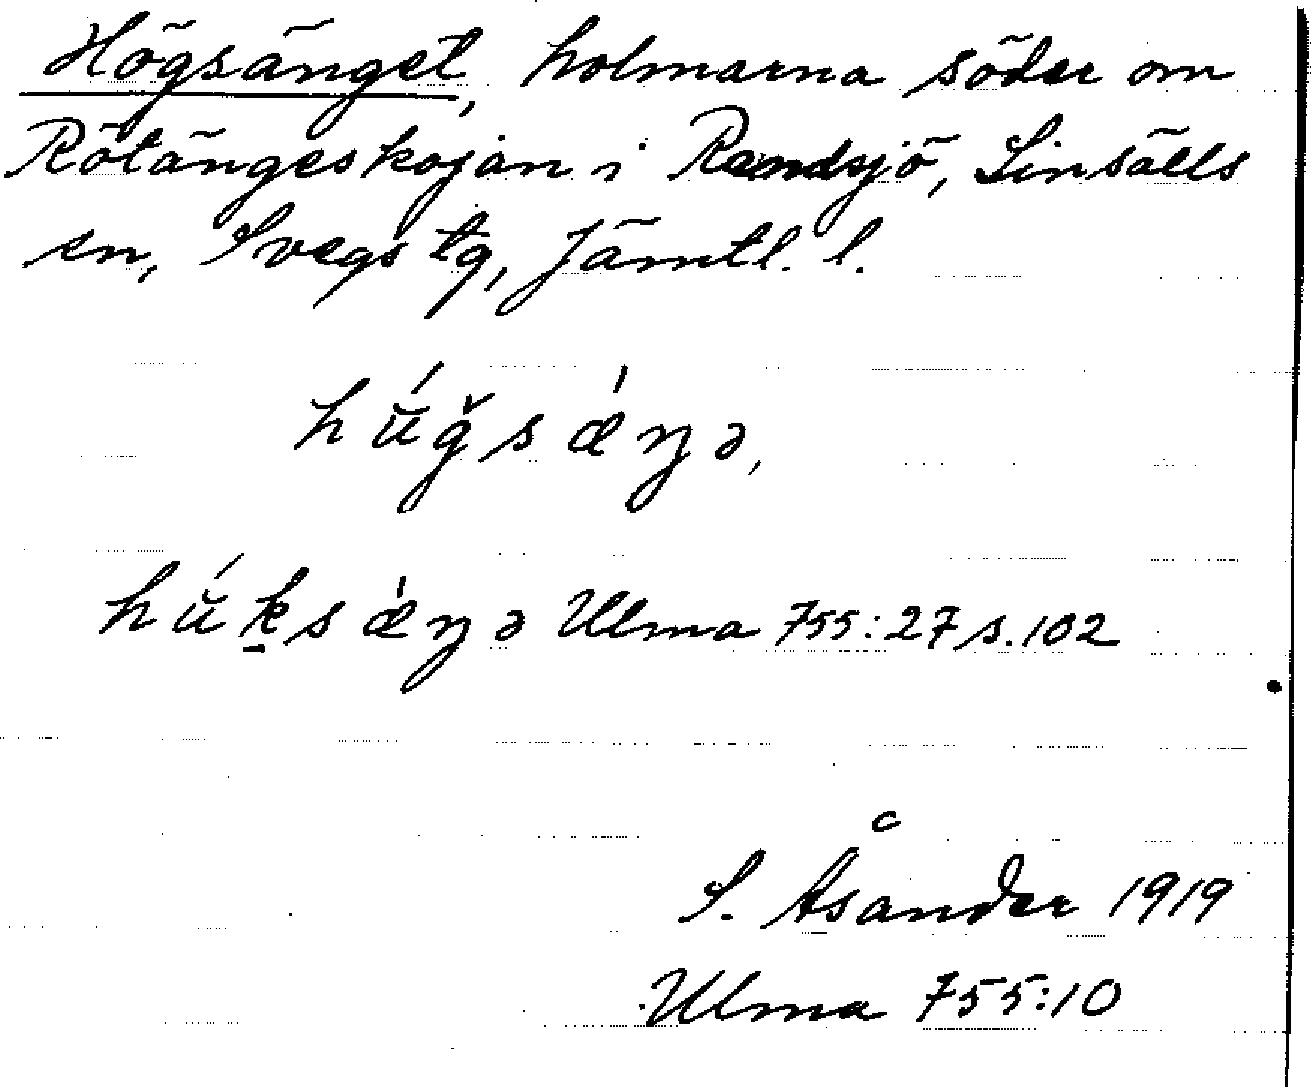 Högsänget, holmarna söder om
Rötängeskojan i Randsjö, Linsälls
sn, Svegs tg, Jämtl. l.
hŭ́ǧsǽŋə,
hŭ́k̠sǽŋə Ulma 755:27 s. 102
S. Åsander 1919
Ulma 755:10